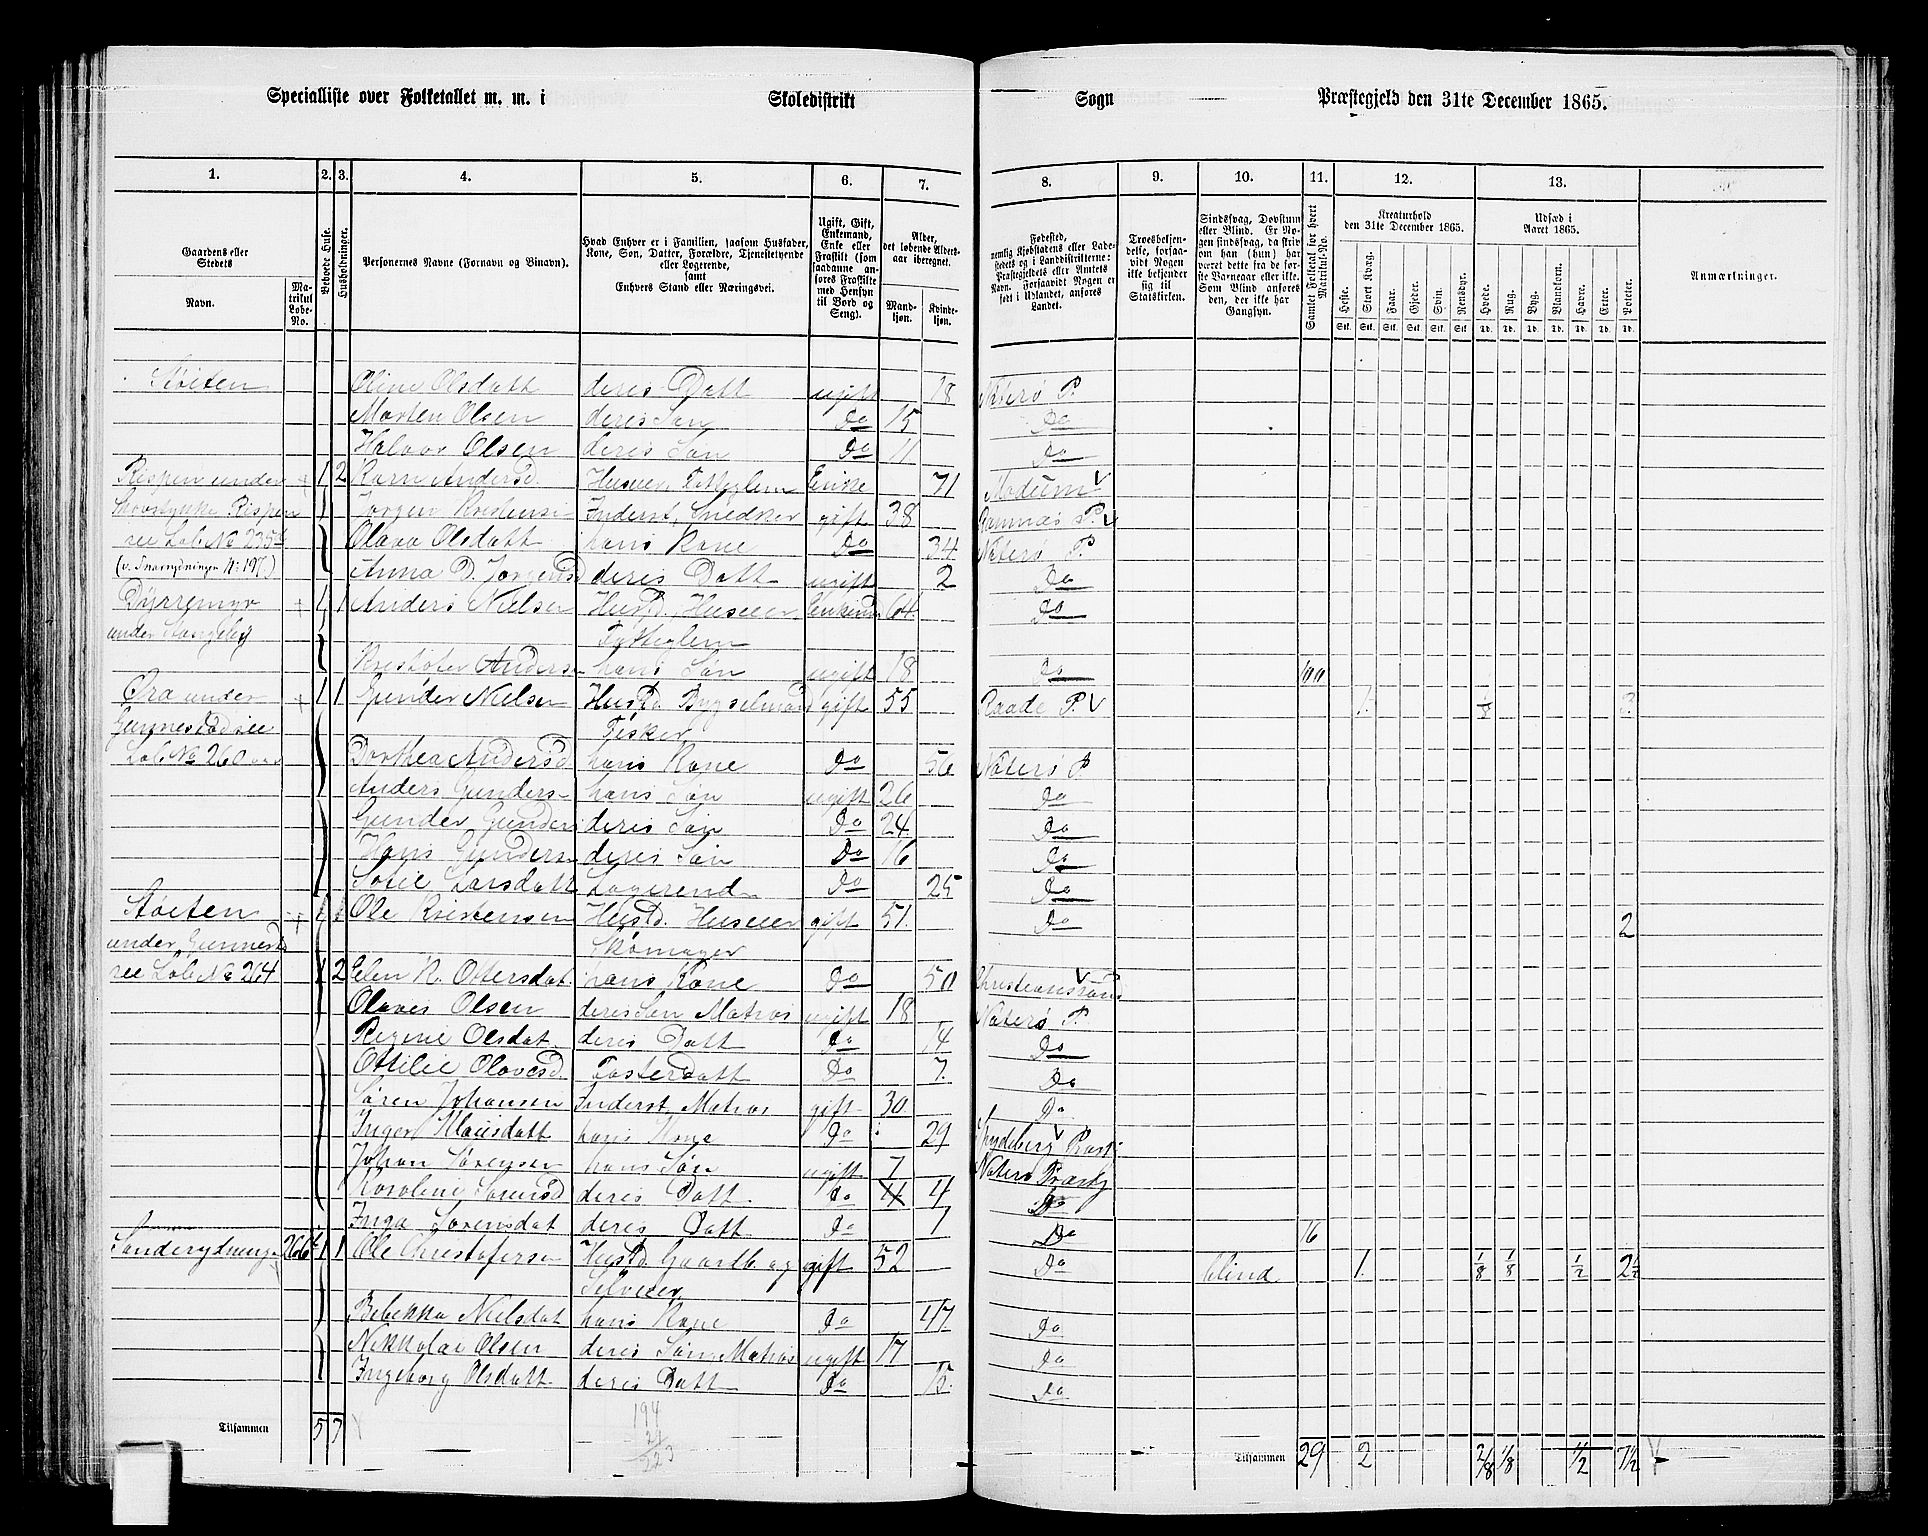 Specialliste over Folketallet m. m. i Skoledistrikt Sogn Præstegjeld den 31te December 1865.
1. 2. 3. 4. 5. 6. 7. 8. 9. 10. 11. 12. 13.
Gaardens eller Stedets
Navn.
Matrikul Løbe-No.
Beboede Huse.
Husholdninger.
Personernes Navne (Fornavn og Binavn).
Hvad Enhver er i Familien, saasom Husfader, Kone, Søn, Datter, Forældre, Tjenestetyende eller Logerende,
samt
Enhvers Stand eller Næringsvei.
Ugift, Gift, Enkemand, Enke eller Fraskilt (som saadanne anføres Fraskilte med Hensyn til Bord og Seng).
Alder, det løbende Aldersaar iberegnet.
Mandkjøn.
Kvindekjøn.
Fødested,
nemlig Kjøbstadens eller Ladestedets og i Landdistrikterne: Præstegjeldets eller Amtets Navn. Forsaavidt Nogen er født i Udlandet, anføres Landet.
Troesbekjendelse, forsaavidt Nogen ikke bekjender sig til Statskirken.
Sindssvag, Døvstum eller Blind. Er Nogen sindssvag, da skrives om han (hun) har været dette fra de første Barneaar eller ikke. Som Blind anføres den, der ikke har Gangsyn.
Samlet Folketal for hvert Matrikul-No.
Kreaturhold
den 31te December 1865.
Heste. Stort Kvæg. Faar. Gjeder. Svin. Rensdyr.
Udsæd i
Aaret 1865.
Hvede. Rug. Byg. Blandkorn. Havre. Erter. Poteter.
Anmærkninger.
Støiten Oline Olsdatt deres Datt ugift 18 Nøterø P.
Morten Olsen deres Søn Do 15 Do
Halvor Olsen deres Søn Do 11 Do
Rispen under 1 2 Karn Andersd. Huseier, Fatteglem Enke 71 Modum
Skovstykke Rispen Jørgen Kristense Inderst, Snedker gift 38 Ramnæs P.
see Løb. No 235 Olava Olsdatt hans Kone Do 34 Nøterø P.
Anna D. Jørgensd deres Datt ugift 2 Do
1 1 Anders Nielsen Husfd. Huseier Enkemd 64. Do
under Fatteglem
Kristofer Anders hans Søn ugift 18 Do
Øra under 1 1 Gunder Nielsen Husfd Bygselmand gift 55 Raade P. 1. 3.
Gunnestad see Fisker
Løb. No 260 Dorthea Andersd hans Kone Do 56 Nøterø P
Anders Gunders hans Søn ugift 26 Do
Gunder Gunders deres Søn Do 24 Do
Hans Gunders deres Søn Do 16 Do
Sofie Larsdatt Logerend Do 25 Do
Støiten 1 1 Ole Kristensen Husfd. Huseier gift 51. Do 2
under Gunnest Skomager
see Løb. No 264 1 2 Elen K. Ottersdat. hans Kone Do 50 Christianssand
Olaves Olsen deres Søn Matros ugift 18 Nøterø P.
Regine Olsdat. deres Datt Do 14 Do
Ottilie Olavesd. Fosterdatt Do 7. Do
Søren Johansen Inderst, Matros gift 30 Do
Inger Klausdatt hans Kone Do 29 Spydeberg Præstg
Johan Sørensen hans Søn ugift 7 Nøterø Præstg
Karoline Sørensd deres Datt. Do 4 Do
Inga Sørensdat deres Datt Do 1 Do 16
Sønderydningen 266 1 1 Ole Christofersen Husfd. Gaardb. og gift 52 Do blind 1. 1/8 1/8 1/2 2 1/2
Selveier
Bebekka Nielsdat hans Kone Do 47 Do
Nikkolai Olsen deres Søn Matros ugift 17 Do
Ingeborg Olsdatt deres Datt Do 15. Do
Tilsammen 5 7 194 Tilsammen 29 2 2/8 1/8 1/2 7 1/2